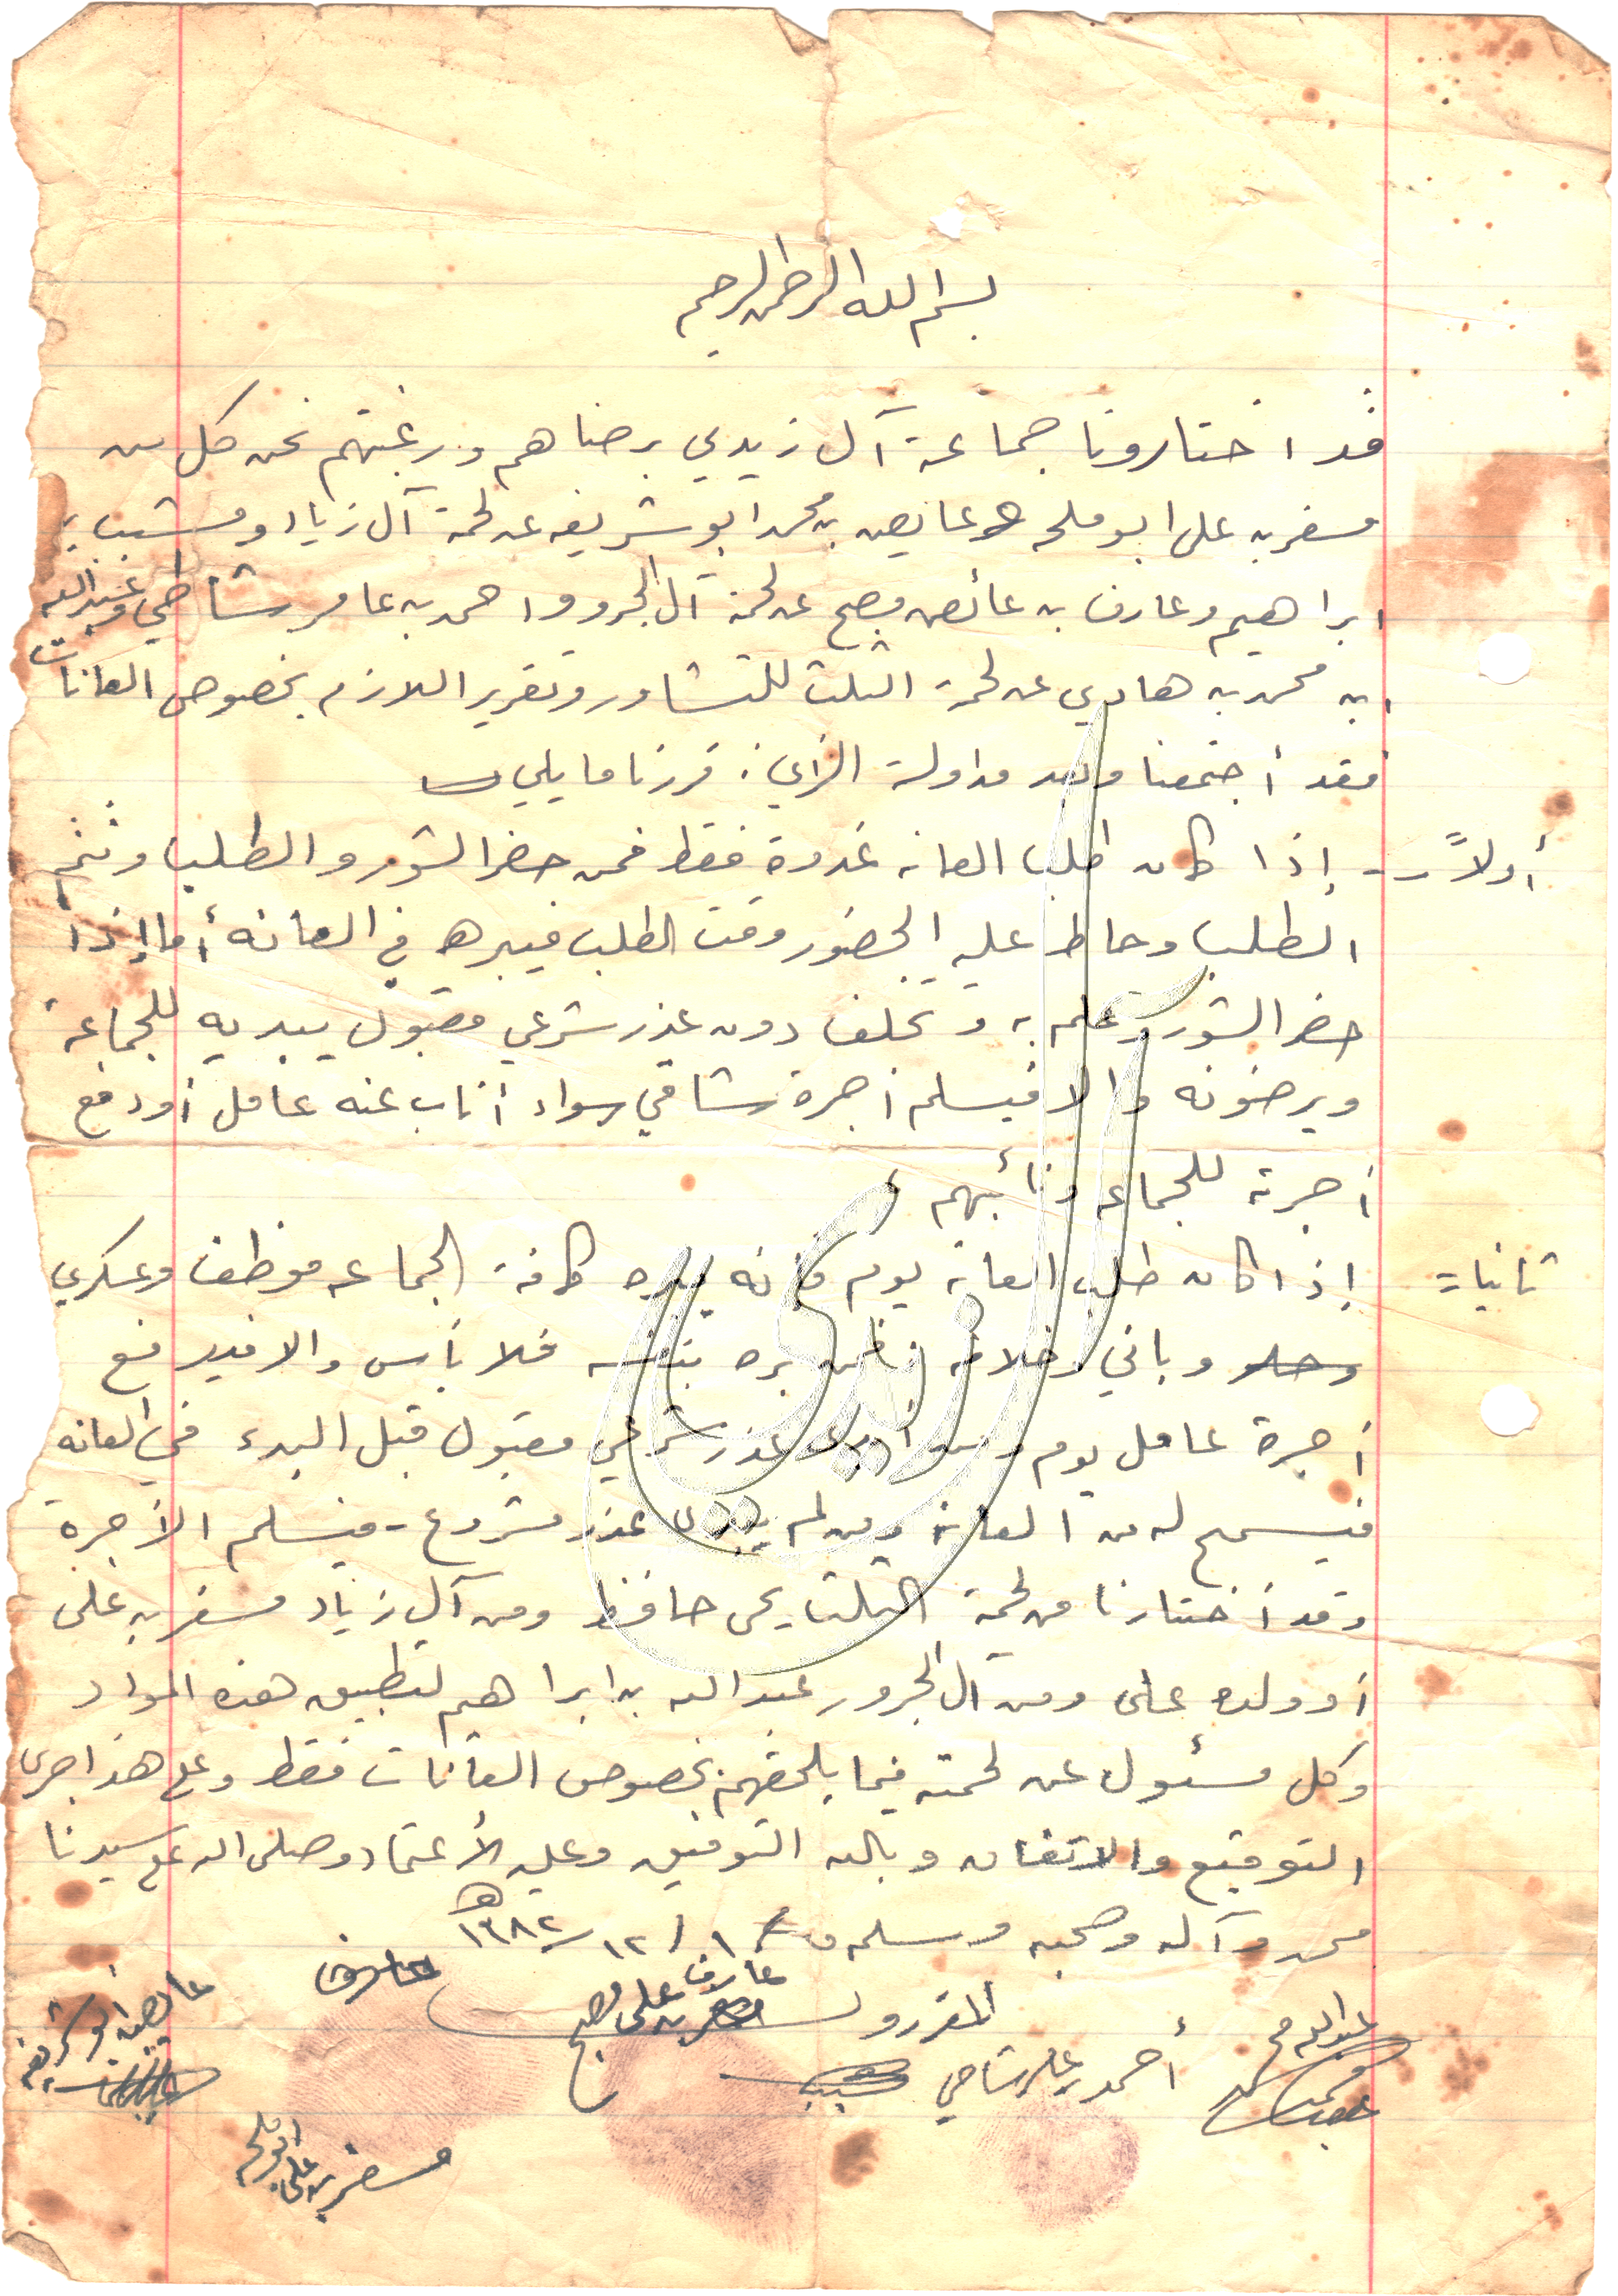 بسم الله الرحمن الرحيم
قد اختارونا جماعة آل زيدي برضاهم ورغبتهم نحن كل من
مسفر بن علي ابو ملحه وعايض بن محمد ابو شريفه عن لحمة آل زياد ومشبب بن
ابراهيم وعارف بن عائض مصبح عن لحمة آل الجرو و احمد بن عامر شاطي وعبدالله
ابن محمد بن هادي عن لحمة الثلث للتشاور وتقرير اللازم بخصوص العانات
فقد أجتمعنا وبعد مداولة الرأي: قررنا مايلي
أولاً - إذا كان طلب العانه غدوة فقط فمن حضر الشور والطلب وثم
الطلب وحاط عليه الحضور وقت الطلب فيبره في العانه أما إذا
حضر الشور وعلم به وتخلف دون عذر شرعي مقبول يبديه للجماعة
ويرضونه والا فيسلم أجرة شاقي سواء أناب عنه عامل أو دفع
أجرته للجماعه ونائبهم
ثانيا = إذا كان طلب العانه يوم فإنه يلزم كافة الجماعه موظف وعسكري
وباني وخلافه فمن بره بنفسه فلا بأس والا فيدفع
أجرة عامل يوم ومن أبدى عذر شرعي مقبول قبل البدء في العانه
فيسمح له من العانه ومن لم يبدى عذر مشروع - فيسلم الأجرة
وقد أختارنا من لحمة الثلث يحى حافظ ومن آل زياد مسفر بن علي
أو ولده علي ومن ال الجرو عبدالله بن ابراهيم لتطبيق هذه المواد
وكل مسئول عن لحمته فيما يلحقهم بخصوص العانات فقط وعلى هذا جرى
التوقيع والاتفاق وبالله التوفيق وعليه الأعتماد وصلى الله على سيدنا
محمد وآله وصحبه وسلم ١ / ١٢ / ١٣٨٢ هـ
المقررون
عارف علي مصبح
عارف
عايض ابو شريفه
عبدالله مح
أحمد بن عامر شاطي
مسفر بن علي ابو ملحه